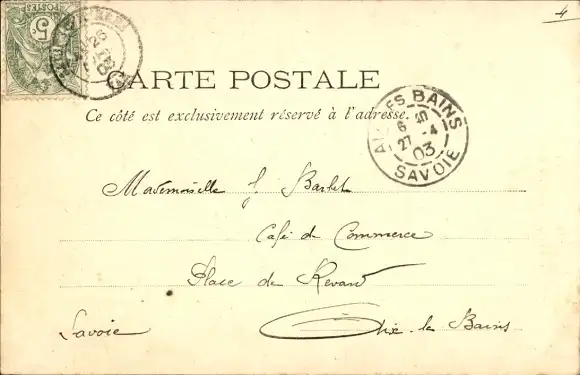 4
5c
POSTES
CARTE POSTALE
Ce côté est exclusivement réservé à l'adresse.
AIX-LES BAINS
6 40
27 -4
03
SAVOIE
Mademoiselle J. Barlet
Café du Commerce
Place du Revard
Savoie Aix-les-Bains